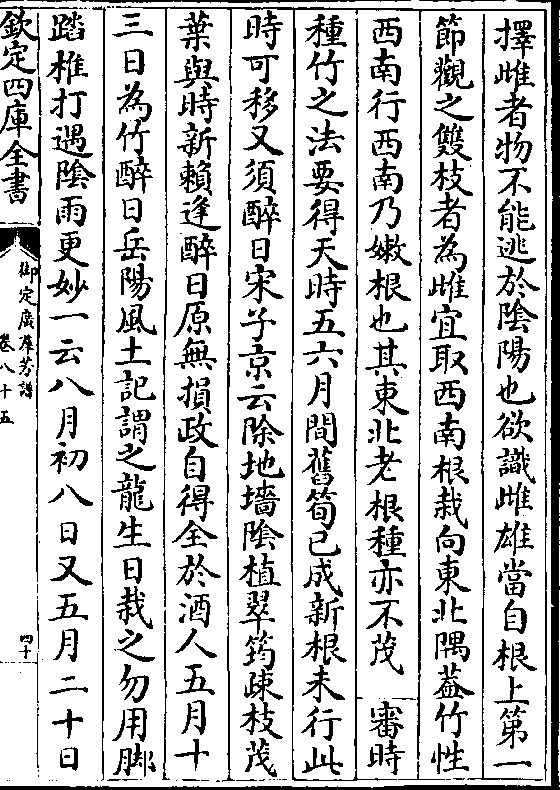 擇雌者物不能逃於陰陽也欲識雌雄當自根上第一
節觀之雙枝者為雌宜取西南根栽向東北隅葢竹性
西南行西南乃嫩根也其東北老根種亦不茂 審時
種竹之法要得天時五六月間舊筍已成新根未行此
時可移又須醉日宋子京云除地墻陰植翠筠疎枝茂
葉與時新賴逢醉日原無損政自得全於酒人五月十
三日為竹醉日岳陽風土記謂之龍生日栽之勿用脚
踏椎打遇陰雨更妙一云八月初八日又五月二十日
欽定四庫全書
御定廣羣芳譜
卷八十五
四十